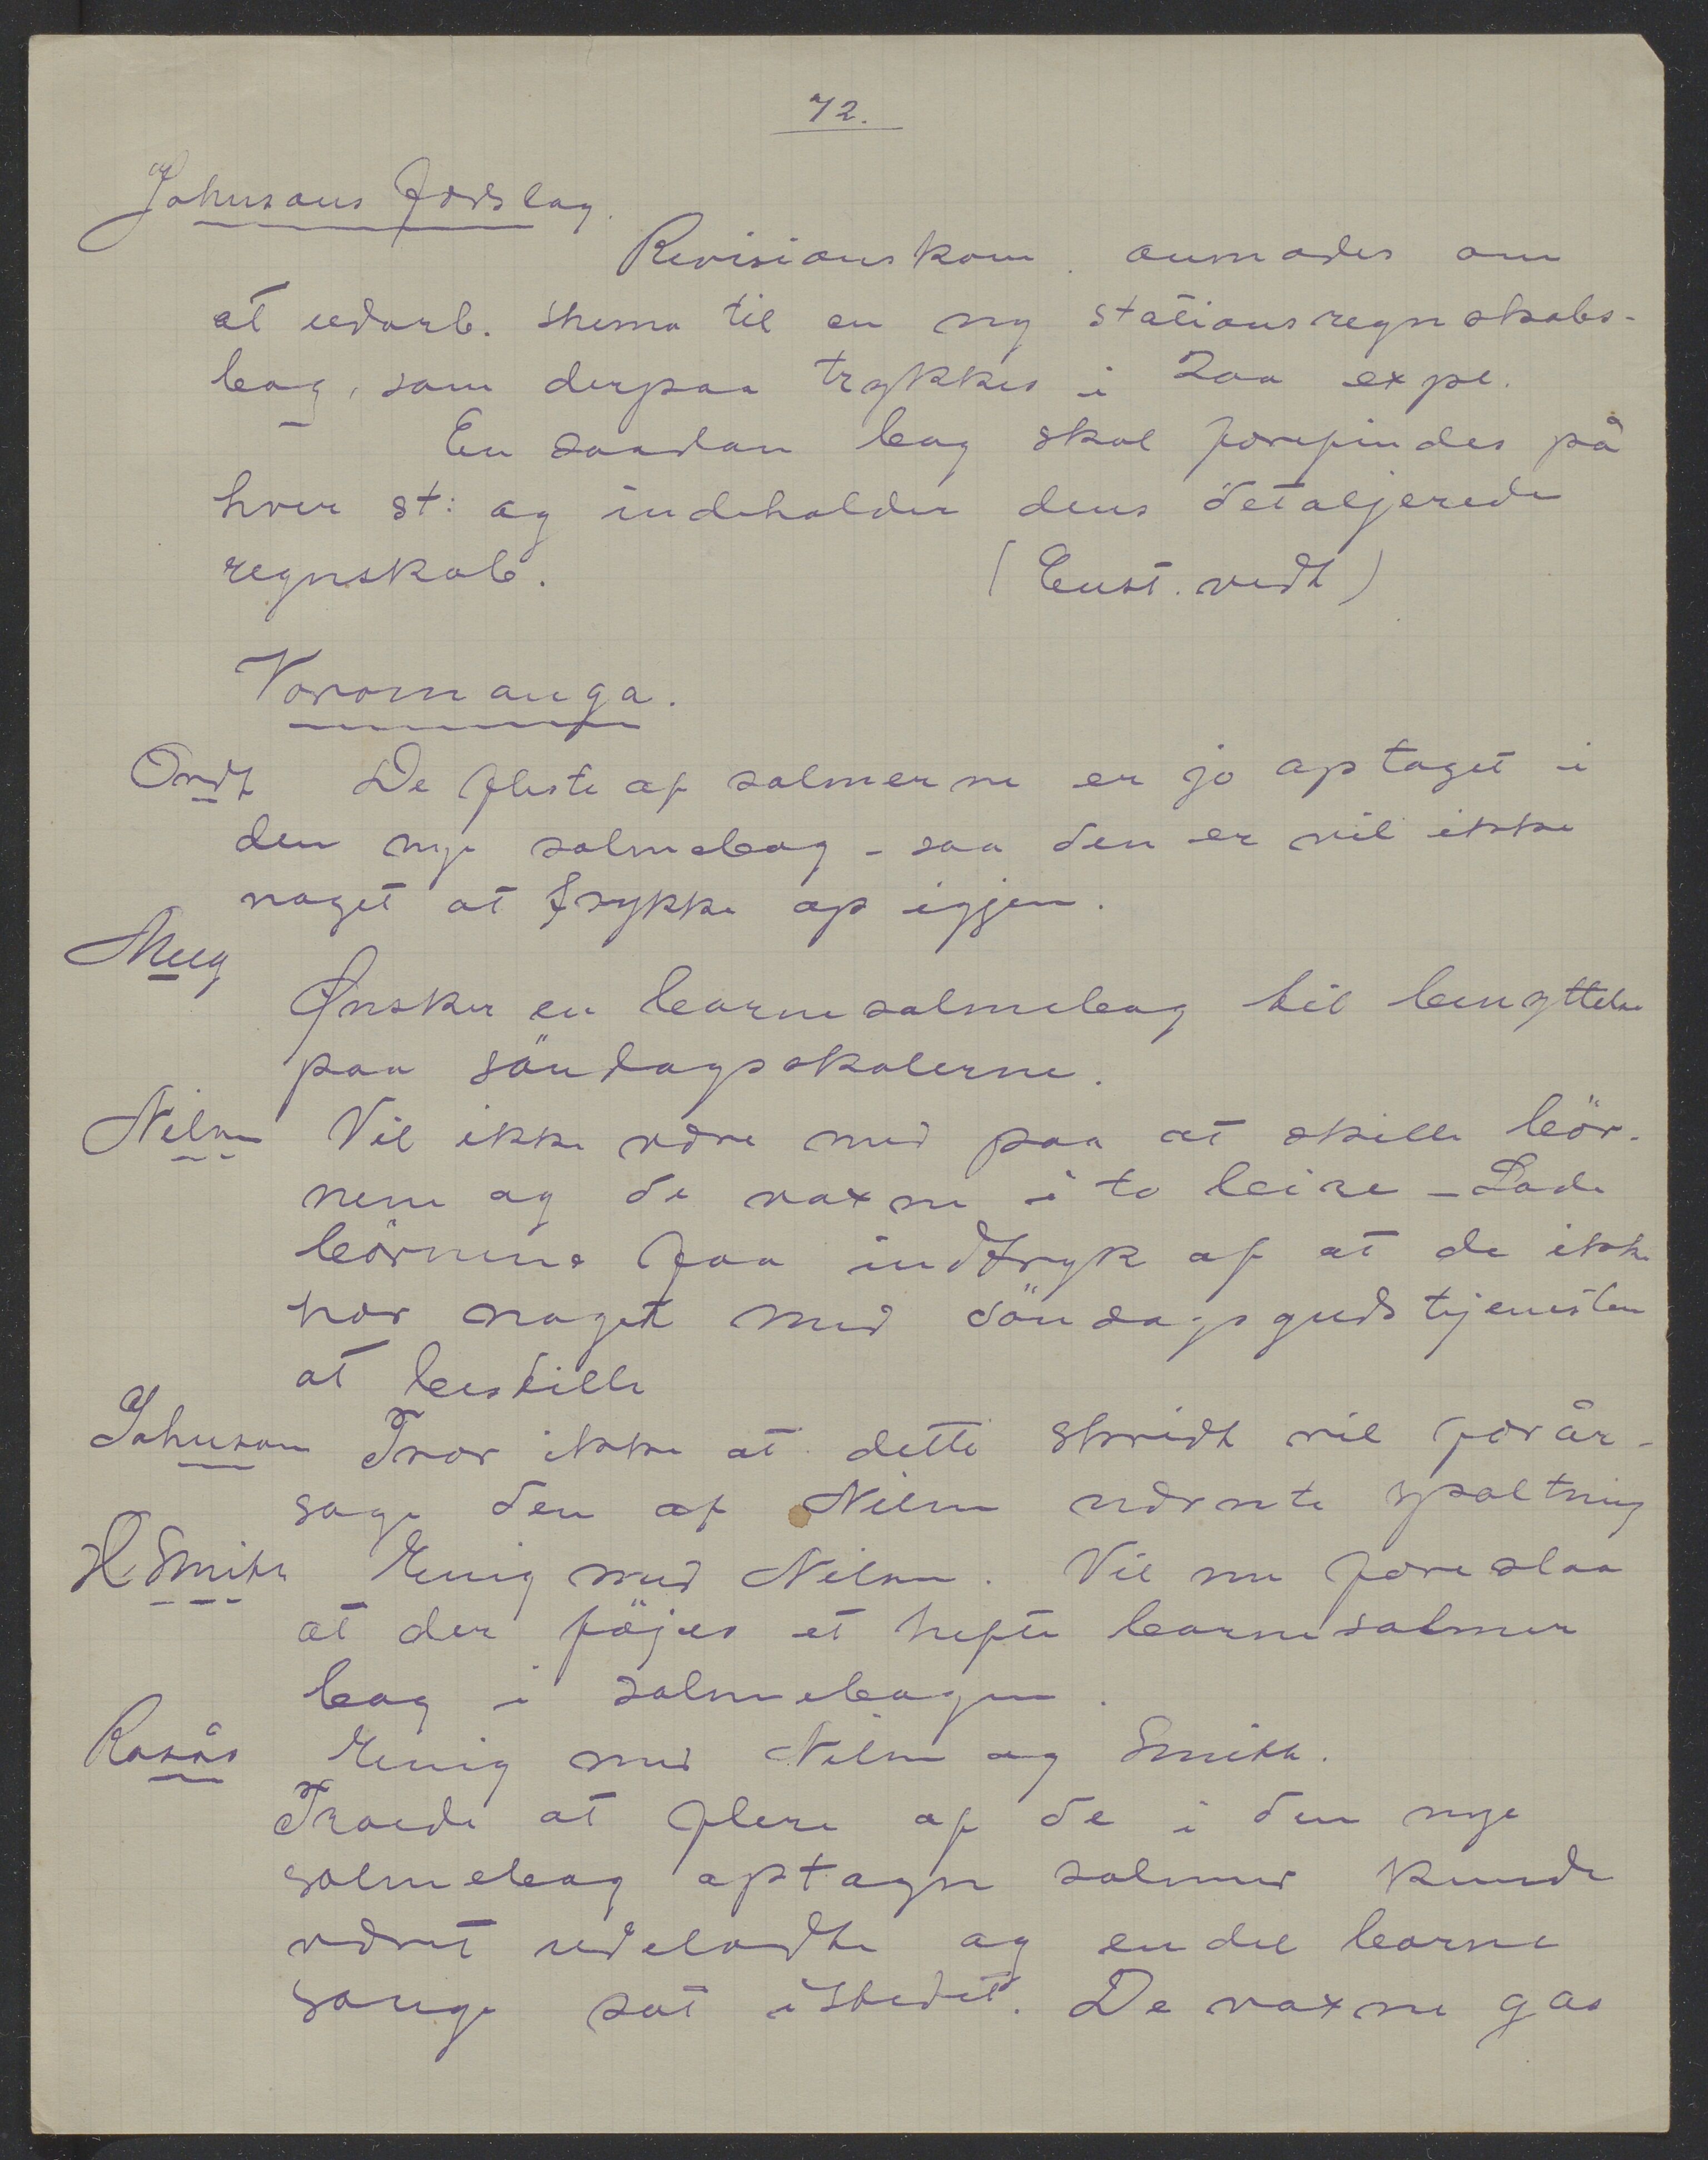 72.
Johnsons forslag.
Revisionskom. anmodes om
at udarb. skema til en ny stationsregnskabs-
bog, som derpaa trykkes i 200 expl.
En saadan bog skal forefindes på
hver st: og indeholder dens detaljerede
regnskab. (Enst. vedt)
Voromanga.
Ordf De fleste af salmerne er jo optaget i
den nye salmebog - saa den er vil ikke
noget at trykke op igjen.
Meeg
Ønsker en barnesalmebog til benyttelse
paa söndagsskolerne.
Nilsn Vil ikke være med paa at skille bör-
nene og de voxne i to leire - Lade
börnene faa indtryk af at de ikke
har noget med söndagsgudstjenesten
at bestille
Johnson Tror ikke at dette skridt vil forår-
sage den af Nilsn nævnte spaltning
H. Smith Enig med Nilsn. Vil nu foreslaa
at der föjes et hefte barnesalmer
bag i salmebogen.
Rosås Enig med Nilsn og Smith.
Troede at flere af de i den nye
salmebog optagn salmer kunde
været udeladte og en del barne
sange sat istedet. De voxne gas